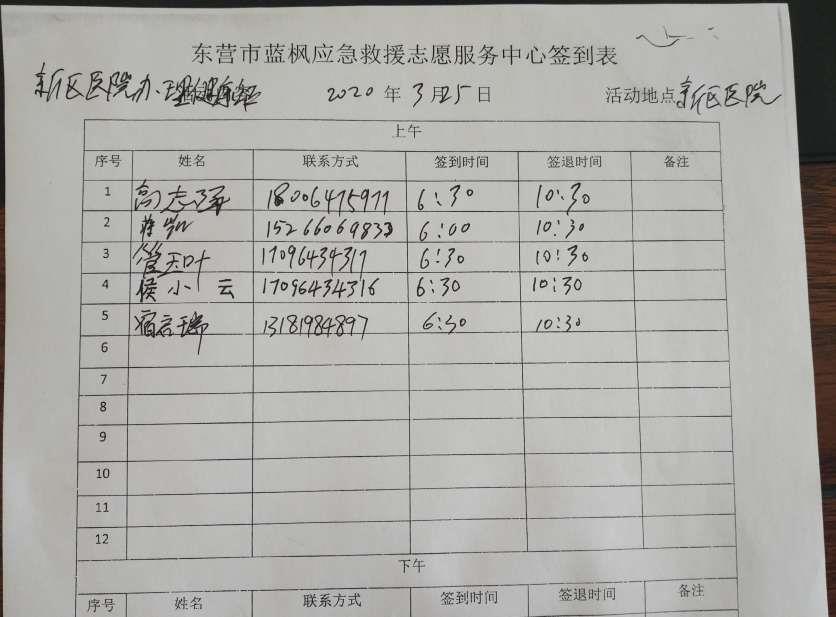 东营市蓝枫应急救援志愿服务中心签到表
新区医院办理健康证 2020 年 3 月 25 日 活动地点 新区医院
上午
序号 姓名 联系方式 签到时间 签退时间 备注
1 高志强 18006475977 6:30 10:30
2 蒋凯 15266069833 6:00 10:30
3 管玉叶 17096434317 6:30 10:30
4 侯小云 17096434316 6:30 10:30
5 宿言瑞 13181984897 6:30 10:30
6
7
8
9
10
11
12
下午
序号 姓名 联系方式 签到时间 签退时间 备注